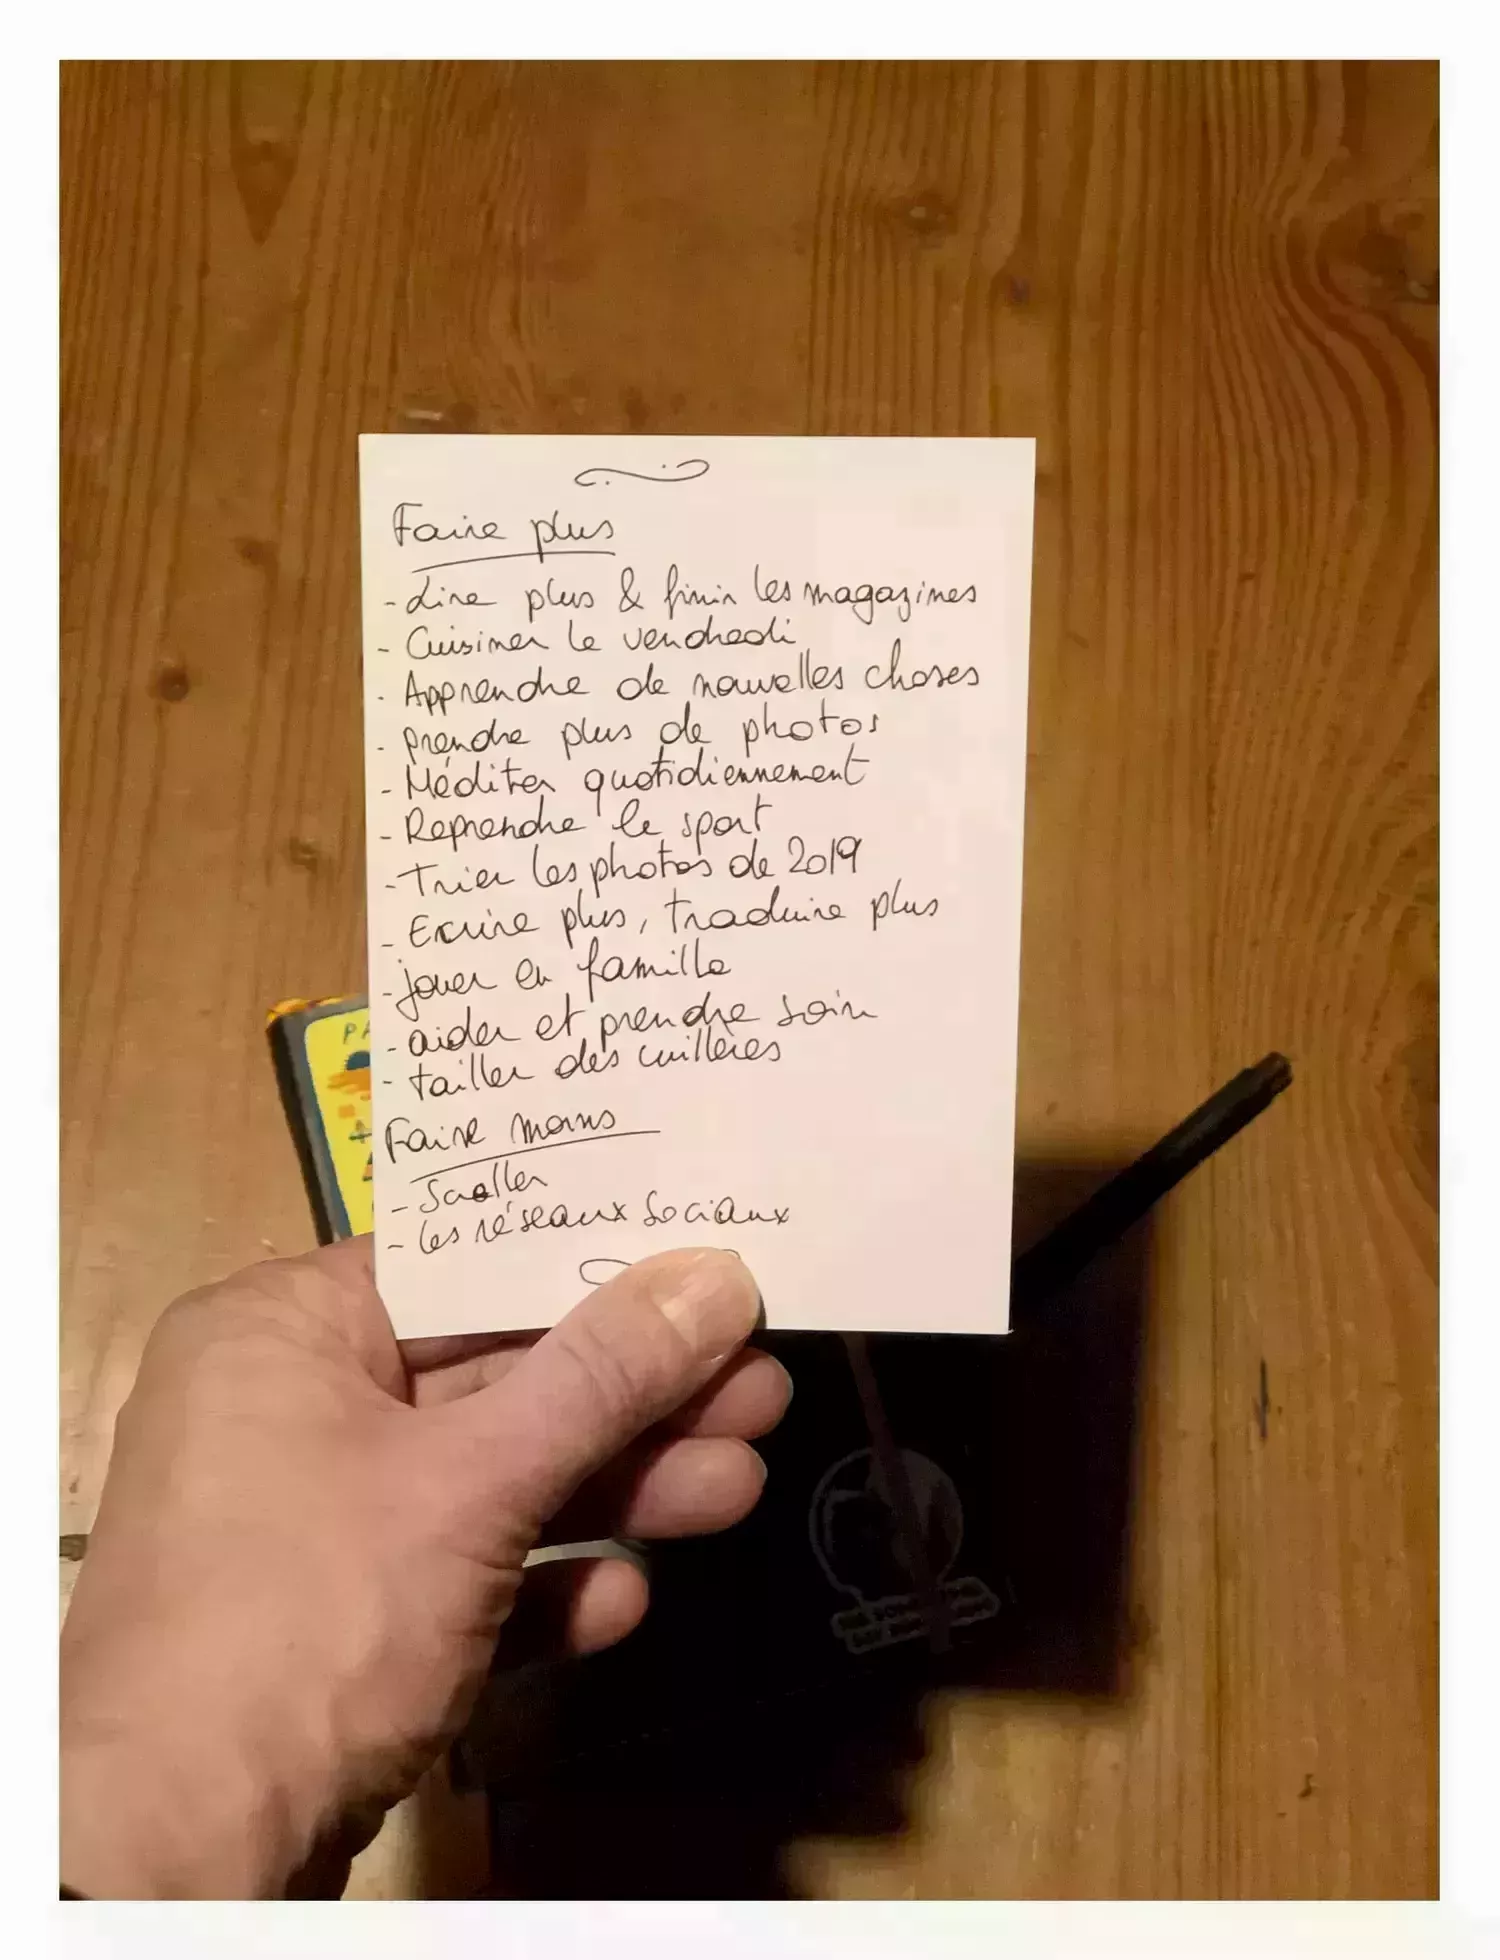 Faire plus
- Lire plus & finir les magazines
- Cuisiner le vendredi
- Apprendre de nouvelles choses
- prendre plus de photos
- Méditer quotidiennement
- Reprendre le sport
- Trier les photos de 2019
- Ecrire plus, traduire plus
- jouer en famille
- aider et prendre soin
- tailler des cuillères
Faire moins
- Scroller
- les réseaux sociaux
PA